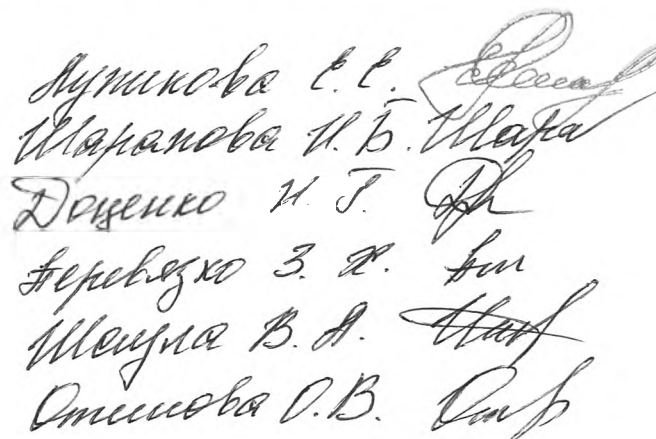 Лупикова Е.Е.
Шарапова И.Б. Шара
Доценко Н.Г.
Перевязко З.Х.
Шаула В.А.
О.В.